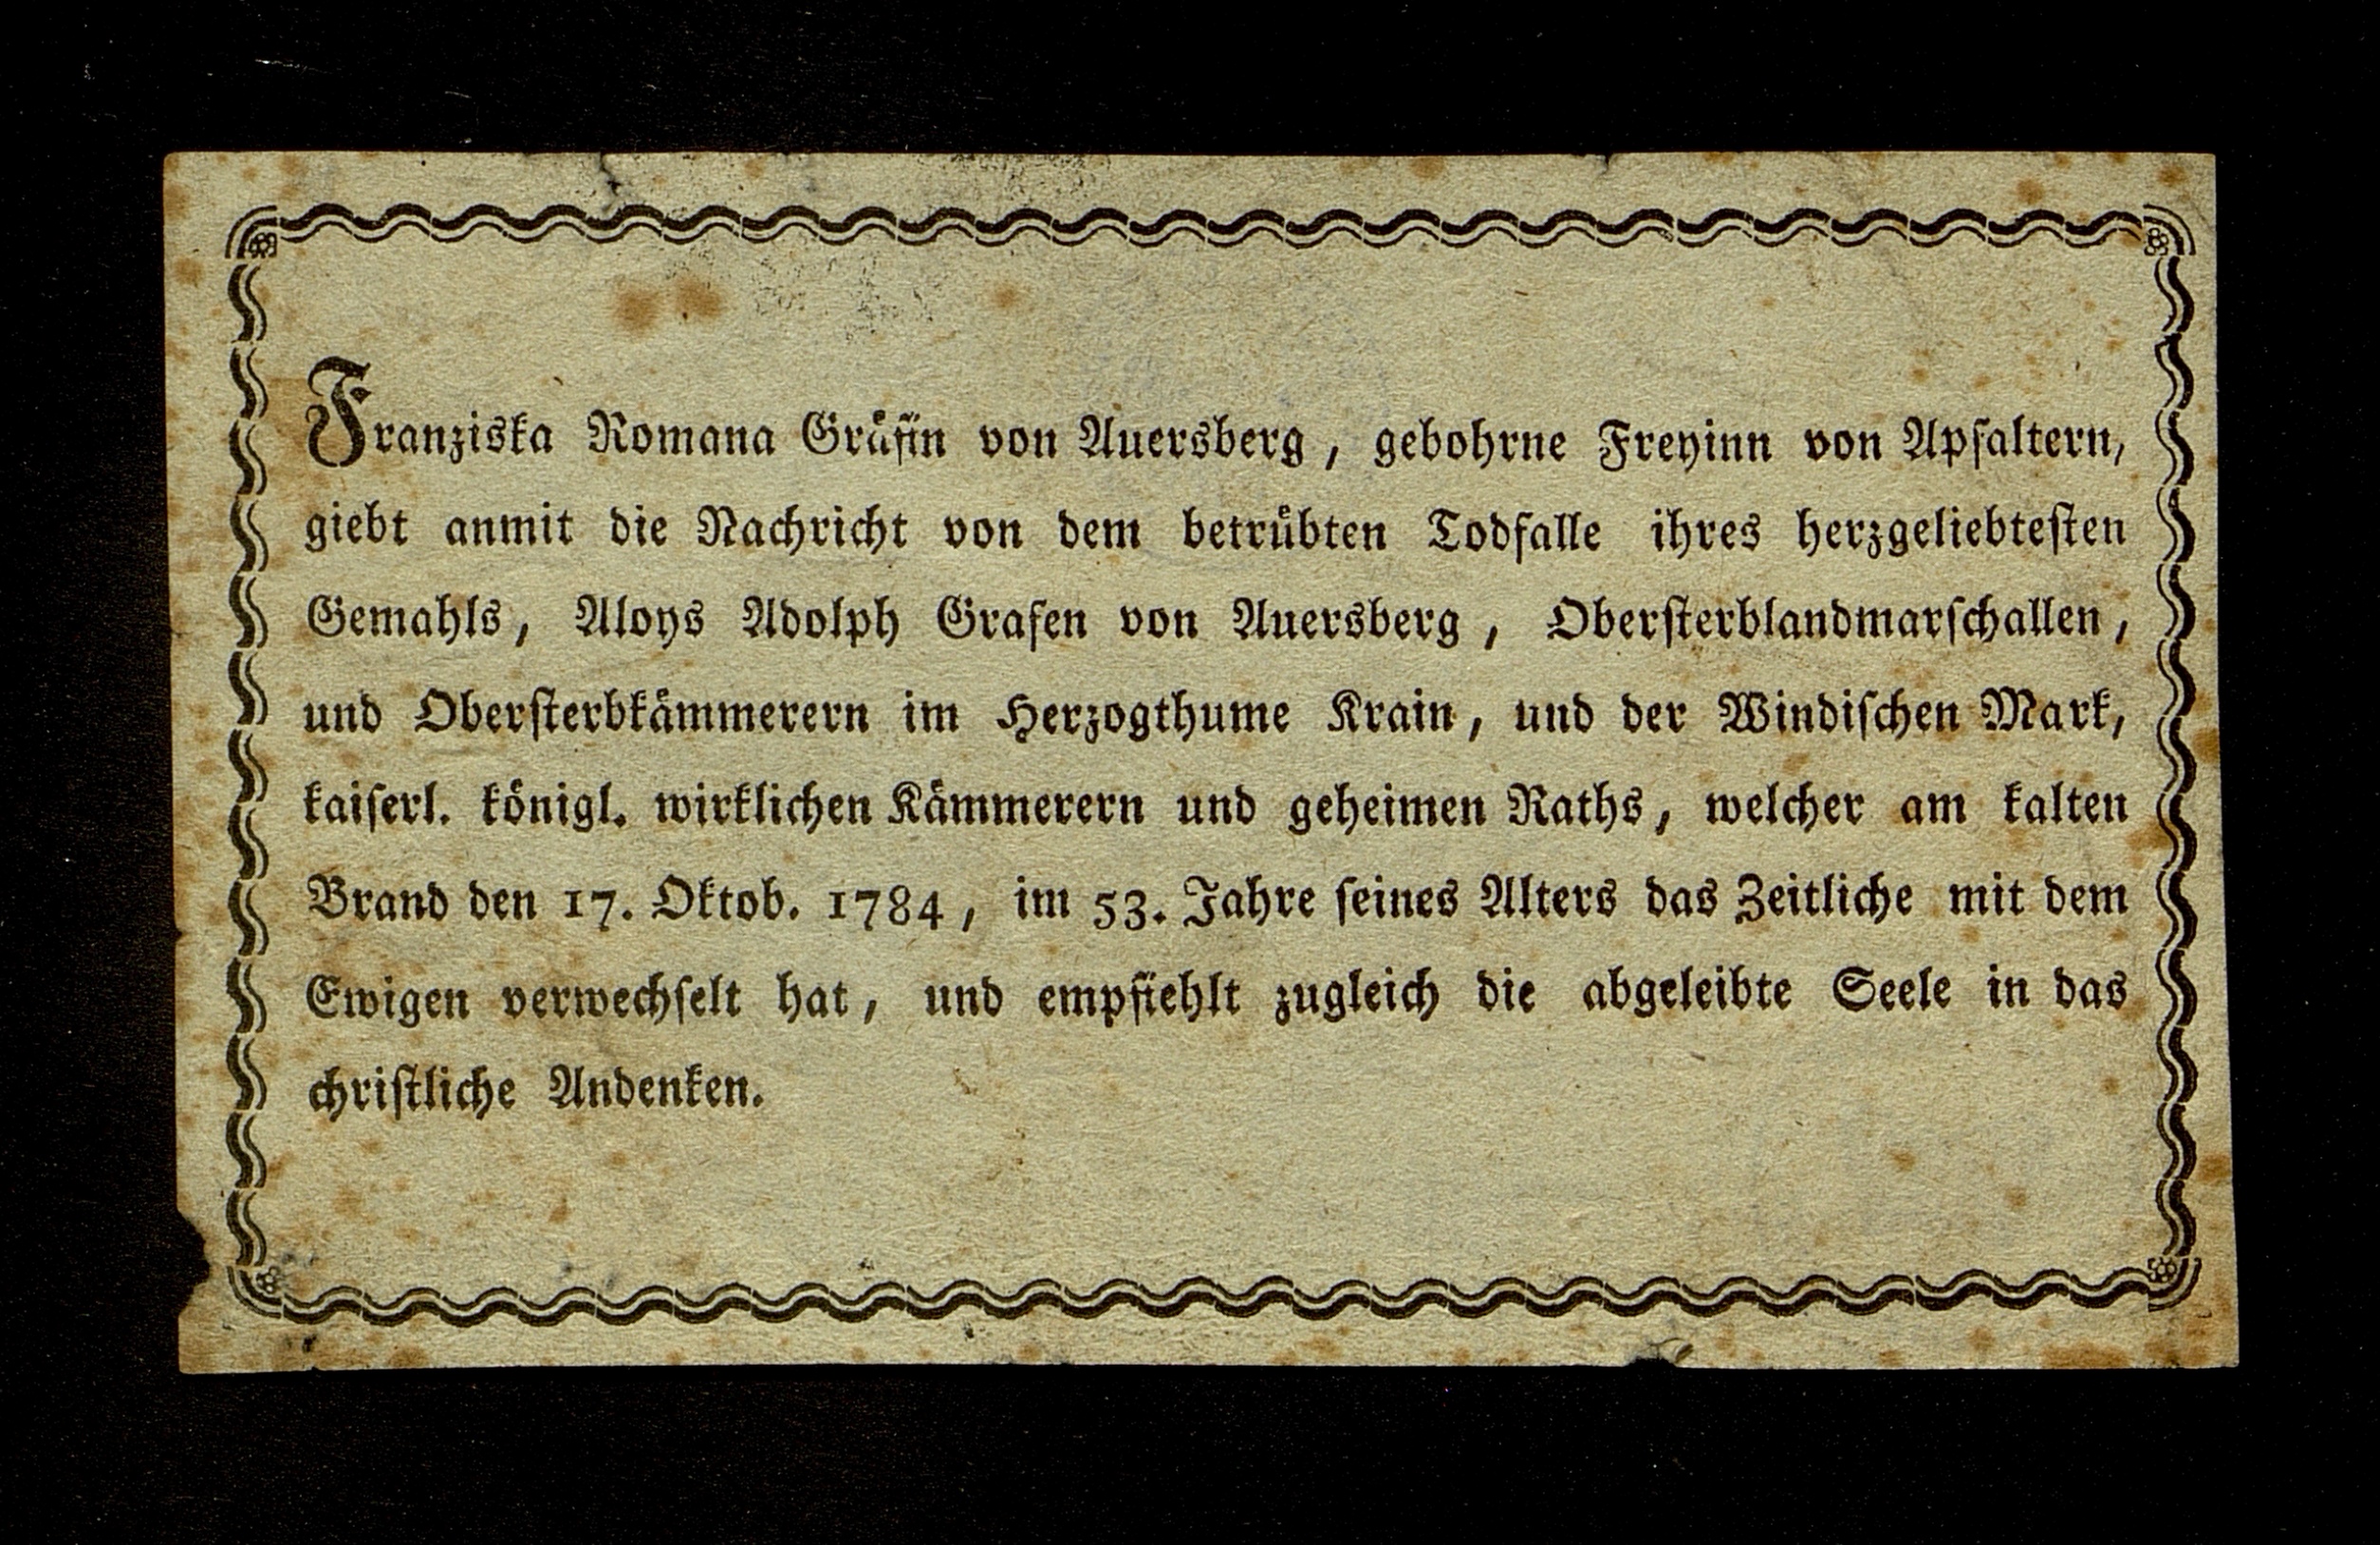 Franziska Romana Gräfin von Auersberg, gebohrne Freyinn von Apfaltern,
giebt anmit die Nachricht von dem betrübten Todfalle ihres herzgeliebtesten
Gemahls, Aloys Adolph Grafen von Auersberg, Obersterblandmarschallen,
und Obersterbkämmerern im Herzogthume Krain, und der Windischen Mark,
kaiserl. königl. wirklichen Kämmerern und geheimen Raths, welcher am kalten
Brand den 17. Oktob. 1784, im 53. Jahre seines Alters das Zeitliche mit dem
Ewigen verwechselt hat, und empfiehlt zugleich die abgeleibte Seele in das
christliche Andenken.